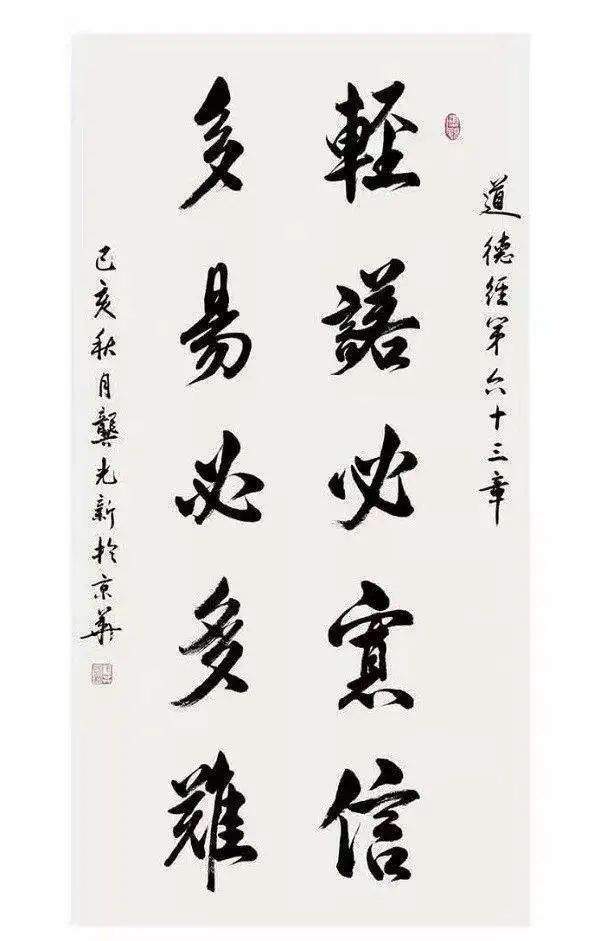 道德经第六十三章
輕諾必寡信
多易必多難
己亥秋月龔光新於京華